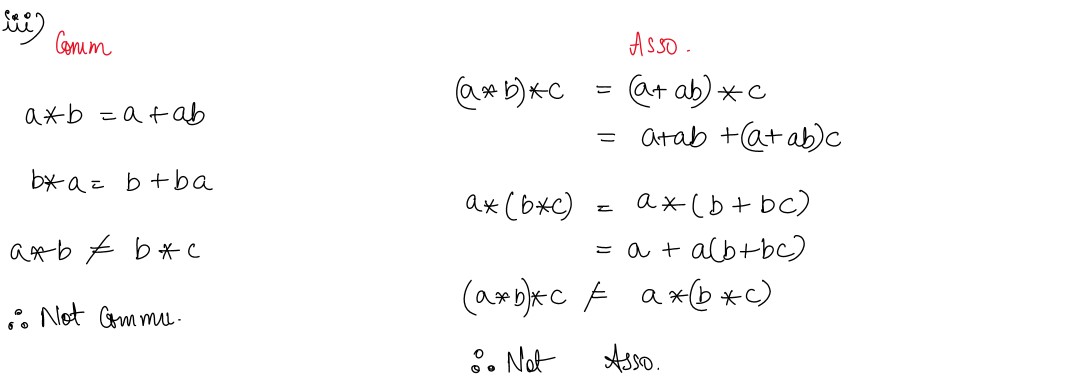 iii)
Comm
a*b = a + ab
b*a = b + ba
a*b ≠ b*c
∴ Not Commu.
Asso.
(a*b)*c = (a + ab)*c
= a+ab + (a+ab)c
a*(b*c) = a*(b + bc)
= a + a(b+bc)
(a*b)*c ≠ a*(b*c)
∴ Not Asso.